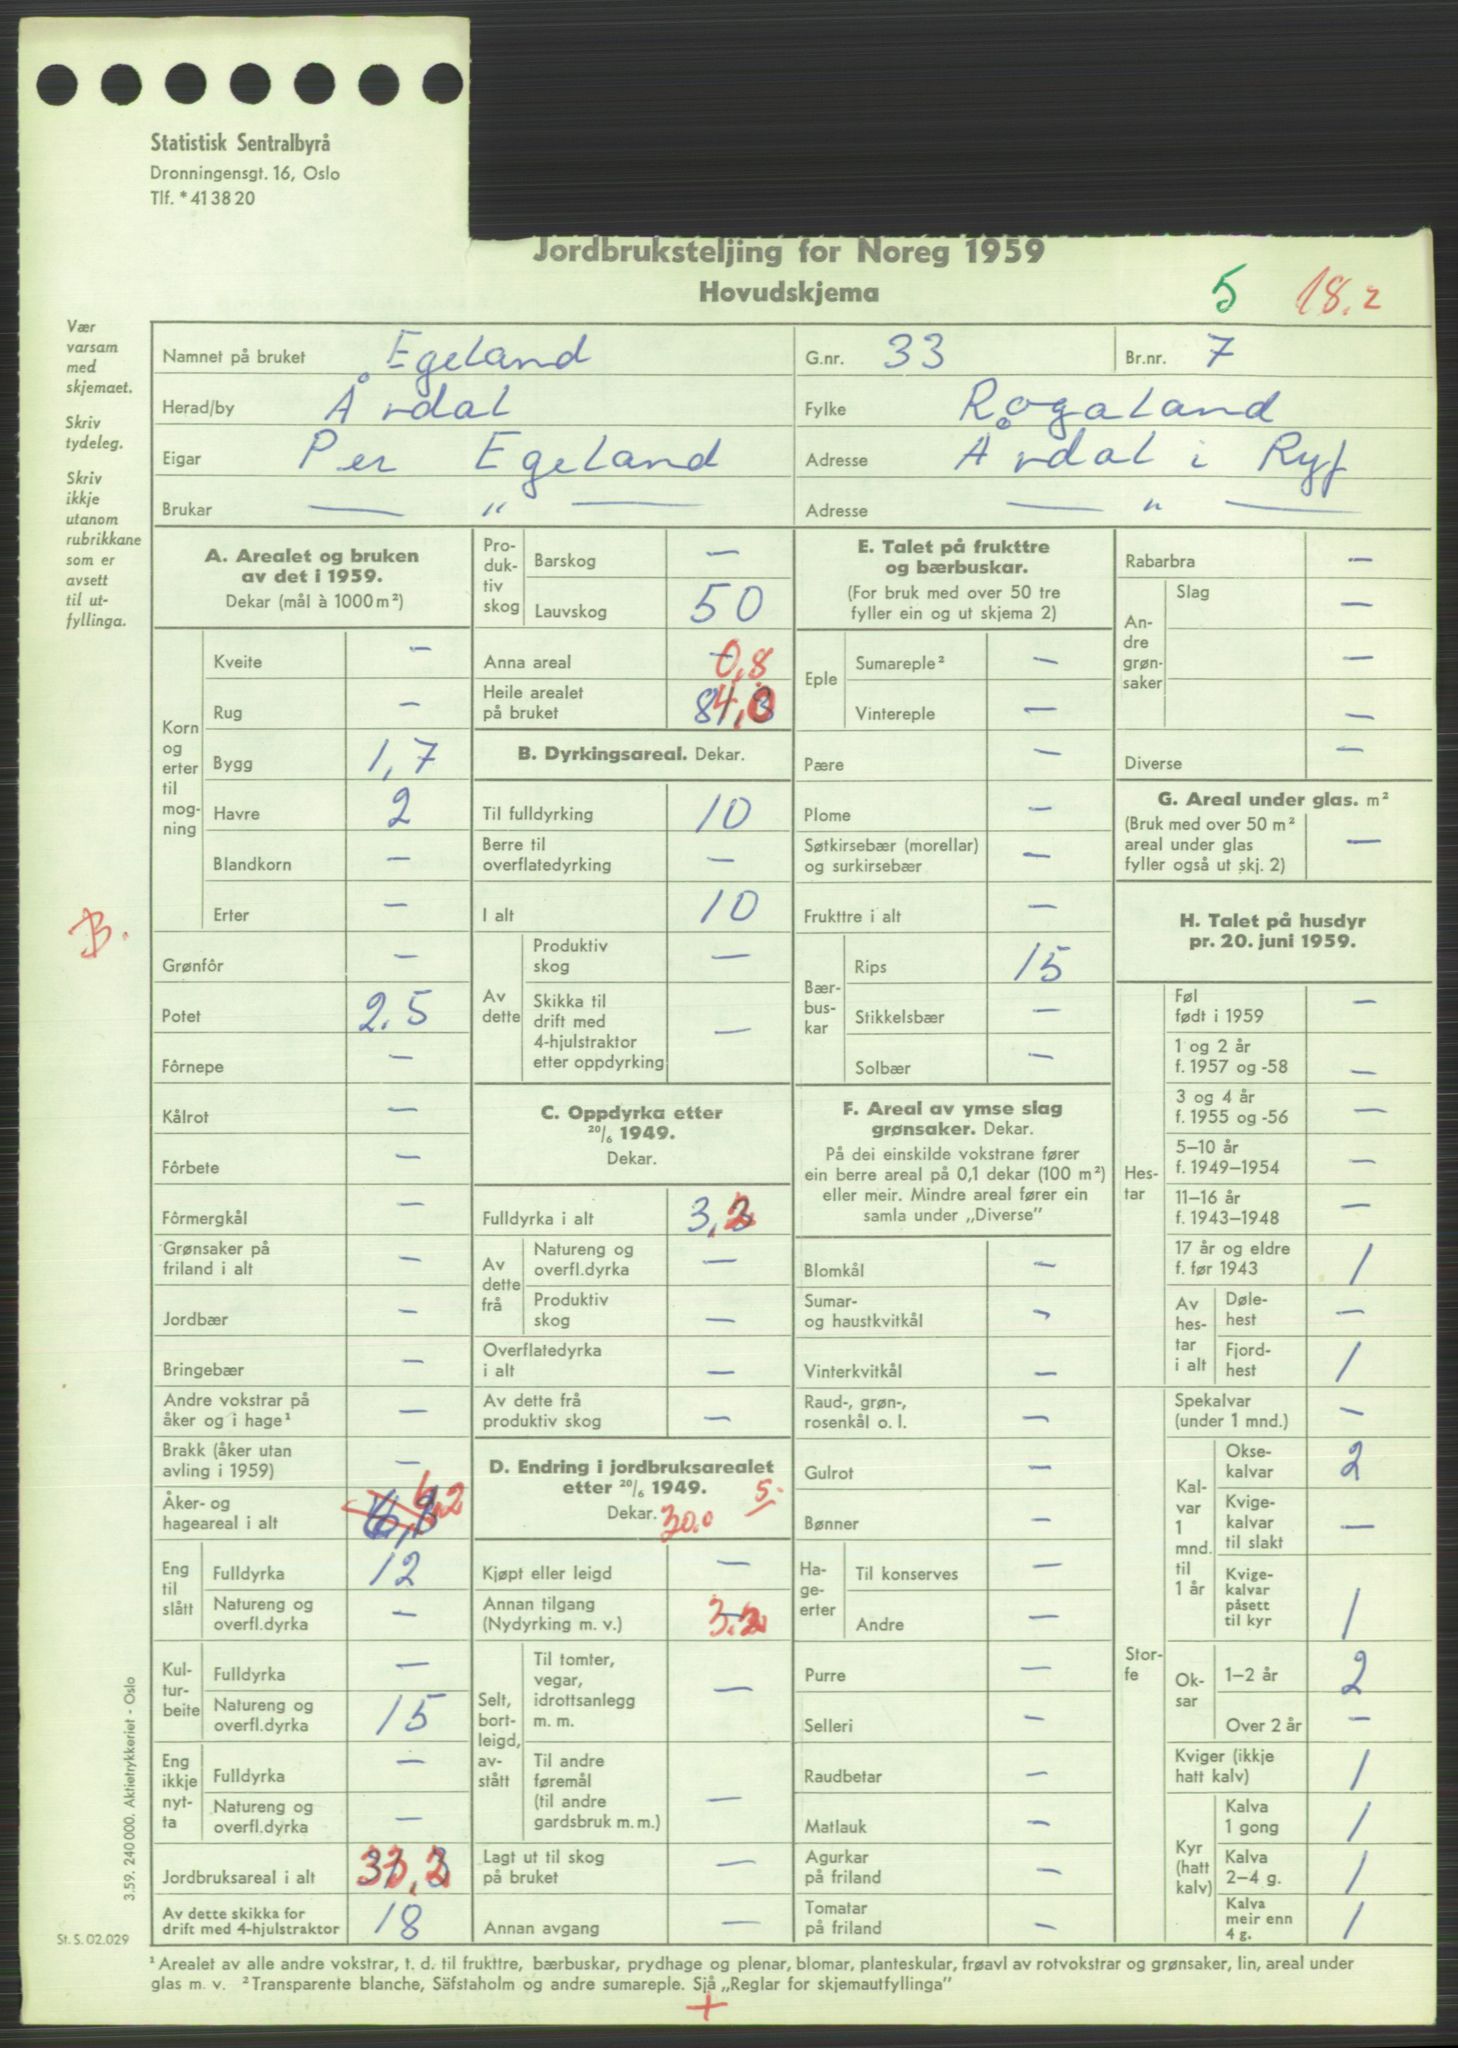 Statistisk Sentralbyrå
Dronningensgt. 16, Oslo
Tlf. * 41 38 20
Jordbruksteljing for Noreg 1959
Hovudskjema
5 18.2
Vær varsam med skjemaet.
Skriv tydeleg.
Skriv ikkje utanom rubrikkane som er avsett til utfyllinga.
Namnet på bruket Egeland G.nr. 33 Br.nr. 7
Herad/by Årdal Fylke Rogaland
Eigar Per Egeland Adresse Årdal i Ryf
Brukar — " — Adresse — " —
A. Arealet og bruken
av det i 1959.
Dekar (mål à 1000 m²)
Korn og erter til mogning
Kveite —
Rug —
Bygg 1,7
Havre 2
Blandkorn —
Erter —
B.
Grønfôr —
Potet 2.5
Fôrnepe —
Kålrot —
Fôrbete —
Fôrmergkål —
Grønsaker på
friland i alt —
Jordbær —
Bringebær —
Andre vokstrar på
åker og i hage¹ —
Brakk (åker utan
avling i 1959) —
Åker- og
hageareal i alt 6,2
Eng til slått
Fulldyrka 12
Natureng og
overfl.dyrka —
Kulturbeite
Fulldyrka —
Natureng og
overfl.dyrka 15
Eng ikkje nytta
Fulldyrka —
Natureng og
overfl.dyrka —
Jordbruksareal i alt 33,2
Av dette skikka for
drift med 4-hjulstraktor 18
Produktiv skog
Barskog —
Lauvskog 50
Anna areal 0,8
Heile arealet
på bruket 84,0
B. Dyrkingsareal. Dekar.
Til fulldyrking 10
Berre til
overflatedyrking —
I alt 10
Av dette
Produktiv
skog —
Skikka til
drift med
4-hjulstraktor
etter oppdyrking —
C. Oppdyrka etter
20/6 1949.
Dekar.
Fulldyrka i alt 3,2
Av dette frå
Natureng og
overfl.dyrka —
Produktiv
skog —
Overflatedyrka
i alt —
Av dette frå
produktiv skog —
D. Endring i jordbruksarealet
etter 20/6 1949. 5.
Dekar. 30.0
Kjøpt eller leigd —
Annan tilgang
(Nydyrking m. v.) 3.2
Selt, bortleigd, avstått
Til tomter,
vegar,
idrottsanlegg
m. m. —
Til andre
føremål
(til andre
gardsbruk m. m.) —
Lagt ut til skog
på bruket —
Annan avgang —
E. Talet på frukttre
og bærbuskar.
(For bruk med over 50 tre
fyller ein og ut skjema 2)
Eple
Sumareple² —
Vintereple —
Pære —
Plome —
Søtkirsebær (morellar)
og surkirsebær —
Frukttre i alt —
Bærbuskar
Rips 15
Stikkelsbær —
Solbær —
F. Areal av ymse slag
grønsaker. Dekar.
På dei einskilde vokstrane fører
ein berre areal på 0,1 dekar (100 m²)
eller meir. Mindre areal fører ein
samla under „Diverse”
Blomkål —
Sumar-
og haustkvitkål —
Vinterkvitkål —
Raud-, grøn-,
rosenkål o. l. —
Gulrot —
Bønner —
Hageerter
Til konserves —
Andre —
Purre —
Selleri —
Raudbetar —
Matlauk —
Agurkar
på friland —
Tomatar
på friland —
Rabarbra —
Andre grønsaker
Slag —
—
—
Diverse —
G. Areal under glas. m²
(Bruk med over 50 m²
areal under glas
fyller også ut skj. 2) —
H. Talet på husdyr
pr. 20. juni 1959.
Hestar
Føl
født i 1959 —
1 og 2 år
f. 1957 og -58 —
3 og 4 år
f. 1955 og -56 —
5–10 år
f. 1949–1954 —
11–16 år
f. 1943–1948 —
17 år og eldre
f. før 1943 1
Av hestar i alt
Dølehest —
Fjordhest 1
Storfe
Spekalvar
(under 1 mnd.) —
Kalvar 1 mnd. til 1 år
Oksekalvar 2
Kvigekalvar
til slakt —
Kvigekalvar
påsett
til kyr 1
Oksar
1–2 år 2
Over 2 år —
Kviger (ikkje
hatt kalv) 1
Kyr (hatt kalv)
Kalva
1 gong 1
Kalva
2–4 g. 1
Kalva
meir enn
4 g. 1
3.59. 240 000. Aktietrykkeriet - Oslo
St. S. 02.029
¹ Arealet av alle andre vokstrar, t. d. til frukttre, bærbuskar, prydhage og plenar, blomar, planteskular, frøavl av rotvokstrar og grønsaker, lin, areal under
glas m. v. ² Transparente blanche, Säfstaholm og andre sumareple. Sjå „Reglar for skjemautfyllinga”
+